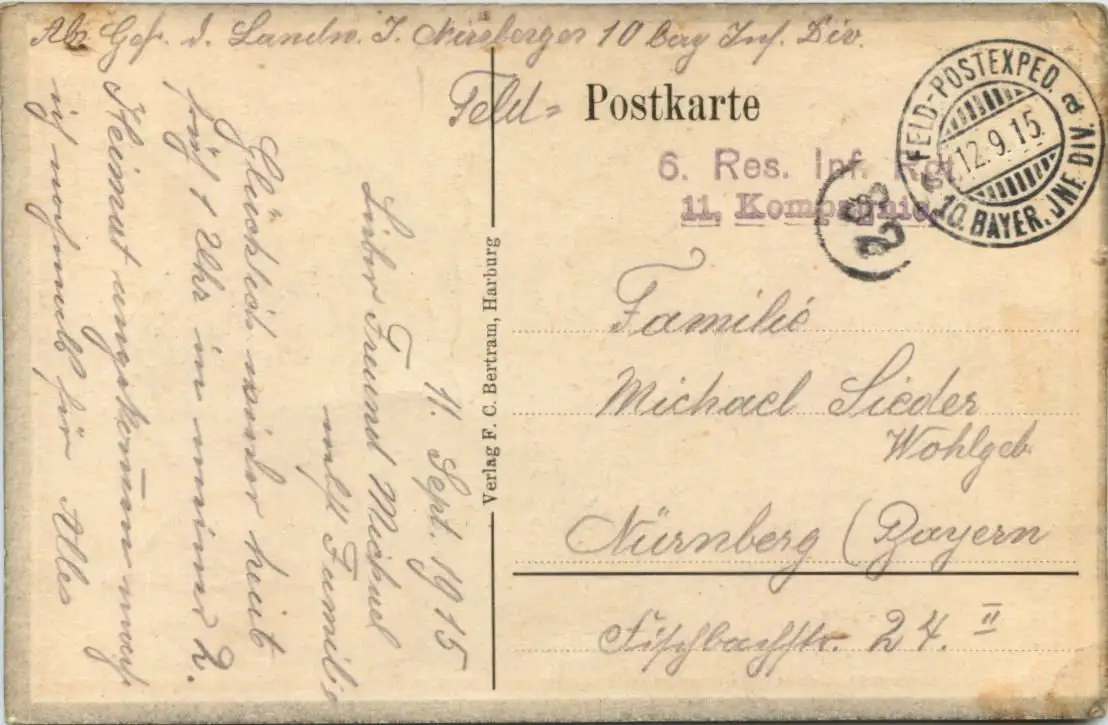 Abs. Gefr. d. Landw. J. Nürsberger 10 bay Inf. Div.
Feld=
Postkarte
FELD-POSTEXPED.
a
12.9.15
10. BAYER. JNF. DIV.
6. Res. Inf. Rgt.
11. Kompagnie.
Familie
Michael Sieder
Wohlgeb.
Nürnberg (Bayern
Fischbachstr. 24. II
Verlag F. C. Bertram, Harburg
11. Sept. 1915
Lieber Freund Michael
nebst Familie
Glücklich wieder heut
früh 1 Uhr in meiner 2.
Heimat angekommen
ich nochmals für Alles